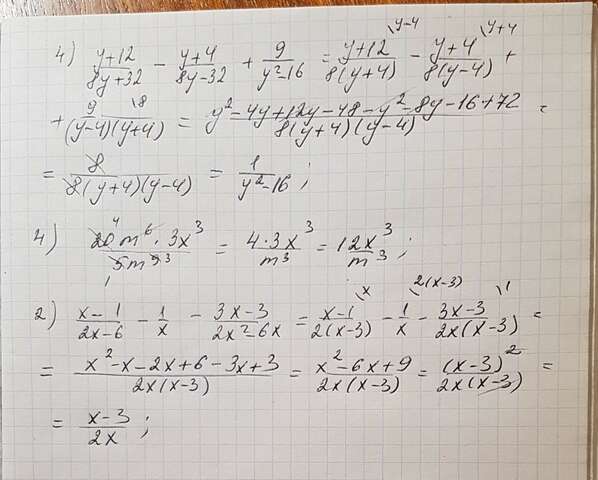 4) (y+12)/(8y+32) - (y+4)/(8y-32) + 9/(y²-16) = (y+12)/(8(y+4)) \y-4 - (y+4)/(8(y-4)) \y+4 +
+ 9/((y-4)(y+4)) \8 = (y²-4y+12y-48-y²-8y-16+72)/(8(y+4)(y-4)) =
= 8/(8(y+4)(y-4)) = 1/(y²-16);
4) (20 4 m⁶·3x³)/(5 1 m⁹ 3) = (4·3x³)/m³ = 12x³/m³;
2) (x-1)/(2x-6) - 1/x - (3x-3)/(2x²-6x) = (x-1)/(2(x-3)) \x - 1/x \2(x-3) - (3x-3)/(2x(x-3)) \1 =
= (x²-x-2x+6-3x+3)/(2x(x-3)) = (x²-6x+9)/(2x(x-3)) = (x-3)²/(2x(x-3)) =
= (x-3)/(2x);